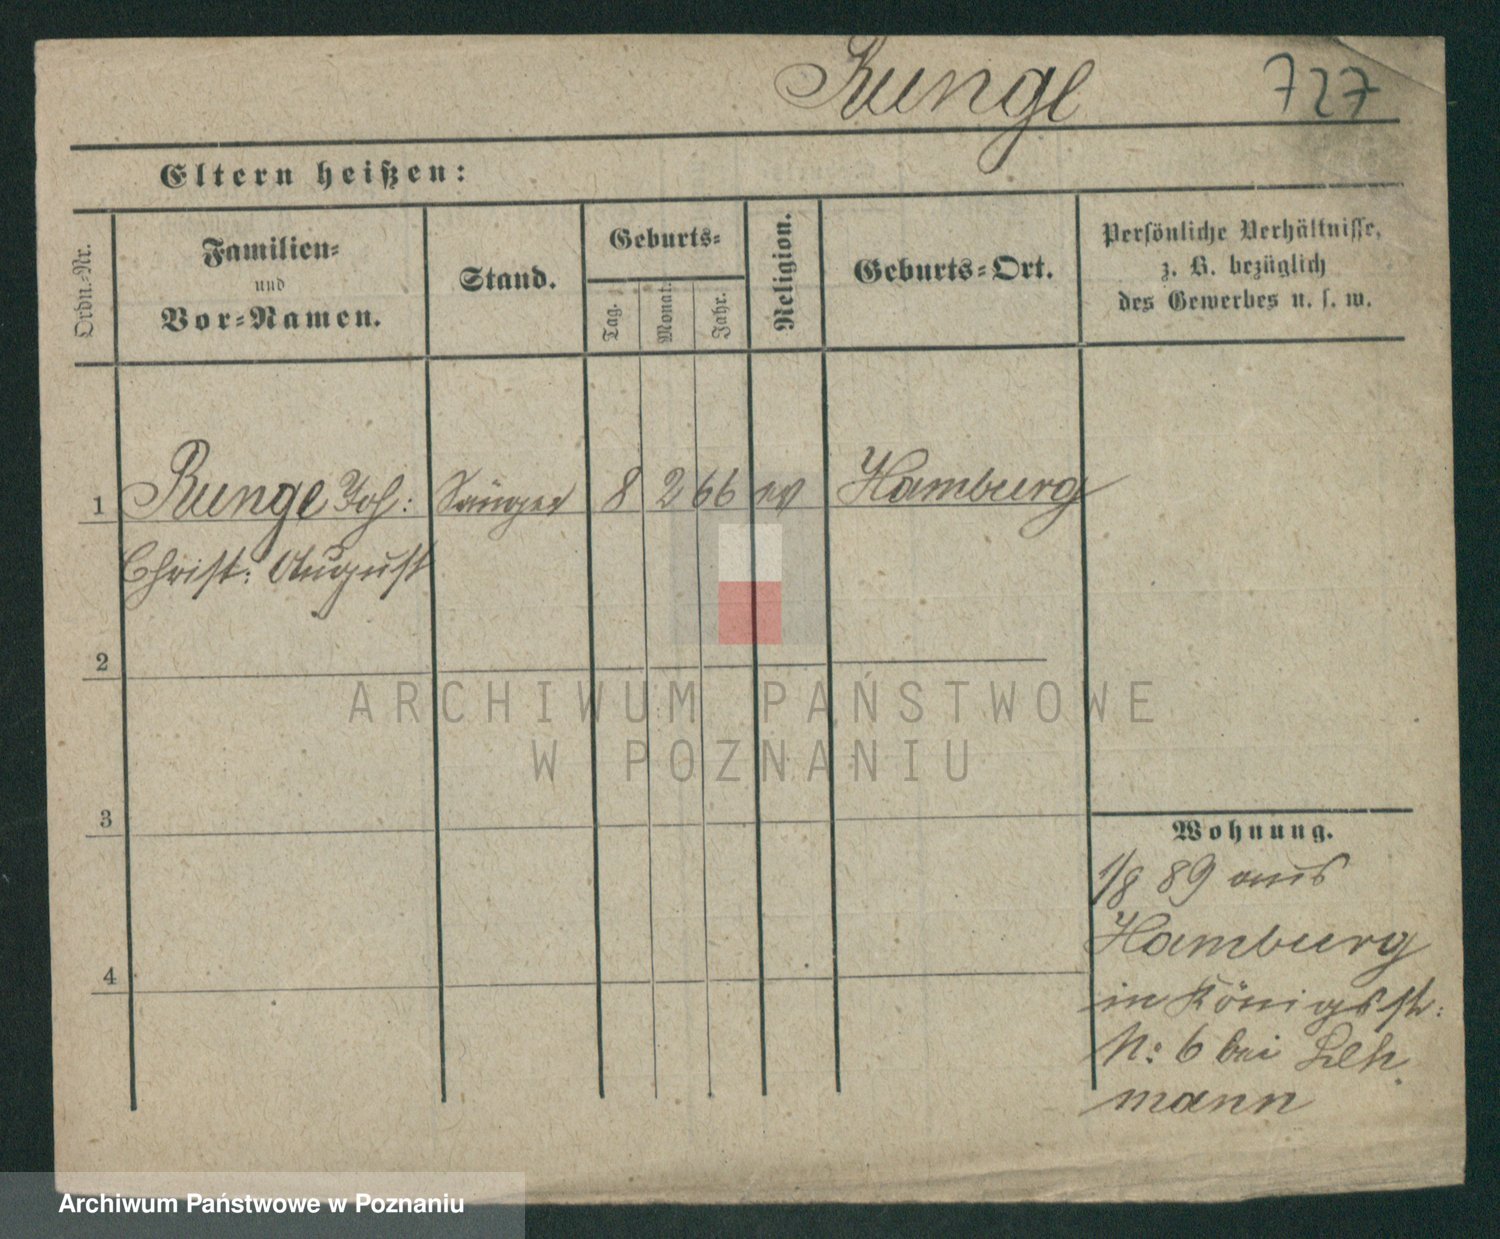 Runge 727
Eltern heißen:
Ordn.-Nr.
Familien-
und
Vor-Namen.
Stand.
Geburts-
Tag.
Monat.
Jahr.
Religion.
Geburts-Ort.
Persönliche Verhältnisse,
z. B. bezüglich
des Gewerbes u. s. w.
1 Runge Joh: Sänger 8 2 66 ev Hamburg
Christ: August
2
ARCHIWUM PAŃSTWOWE
W POZNANIU
3
Wohnung.
1/8 89 aus
Hamburg
4
in Königsstr:
N: 6 bei Leh
mann
Archiwum Państwowe w Poznaniu